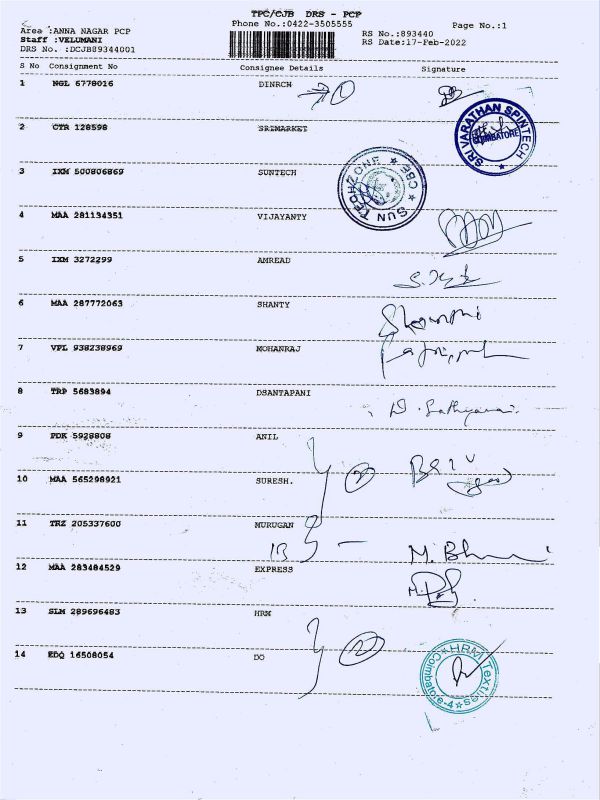 TPC/CJB DRS - PCP
Phone No.:0422-3505555 Page No.:1
Area :ANNA NAGAR PCP RS No.:893440
Staff :VELUMANI RS Date:17-Feb-2022
DRS No. :DCJB89344001
S No Consignment No Consignee Details Signature
1 NGL 6778016 DINRCH
2 CTR 128598 SRIMARKET
SRI VARATHAN SPINTECH
COIMBATORE
3 IXM 500806869 SUNTECH
SUN TECHZONE CBE
4 MAA 281134351 VIJAYANTY
5 IXM 3272299 AMREAD
6 MAA 287772063 SHANTY
7 VPL 938238969 MOHANRAJ
8 TRP 5683894 DSANTAPANI
9 PDK 5928808 ANIL
10 MAA 565298921 SURESH.
2
11 TRZ 205337600 MURUGAN
12 MAA 283484529 EXPRESS
13 SLM 289696483 HRM
14 EDQ 16508054 DO
HRM Textiles
Coimbatore-4